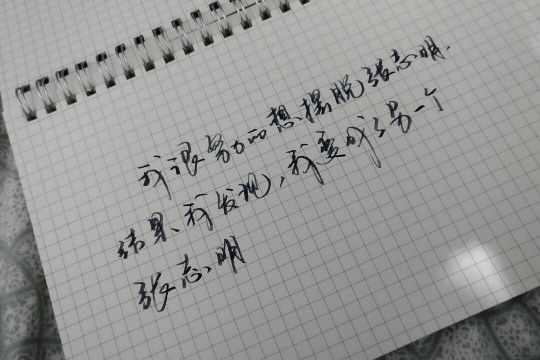 我很努力的想摆脱张志明.
结果、我发现,我变成了另一个
张志明